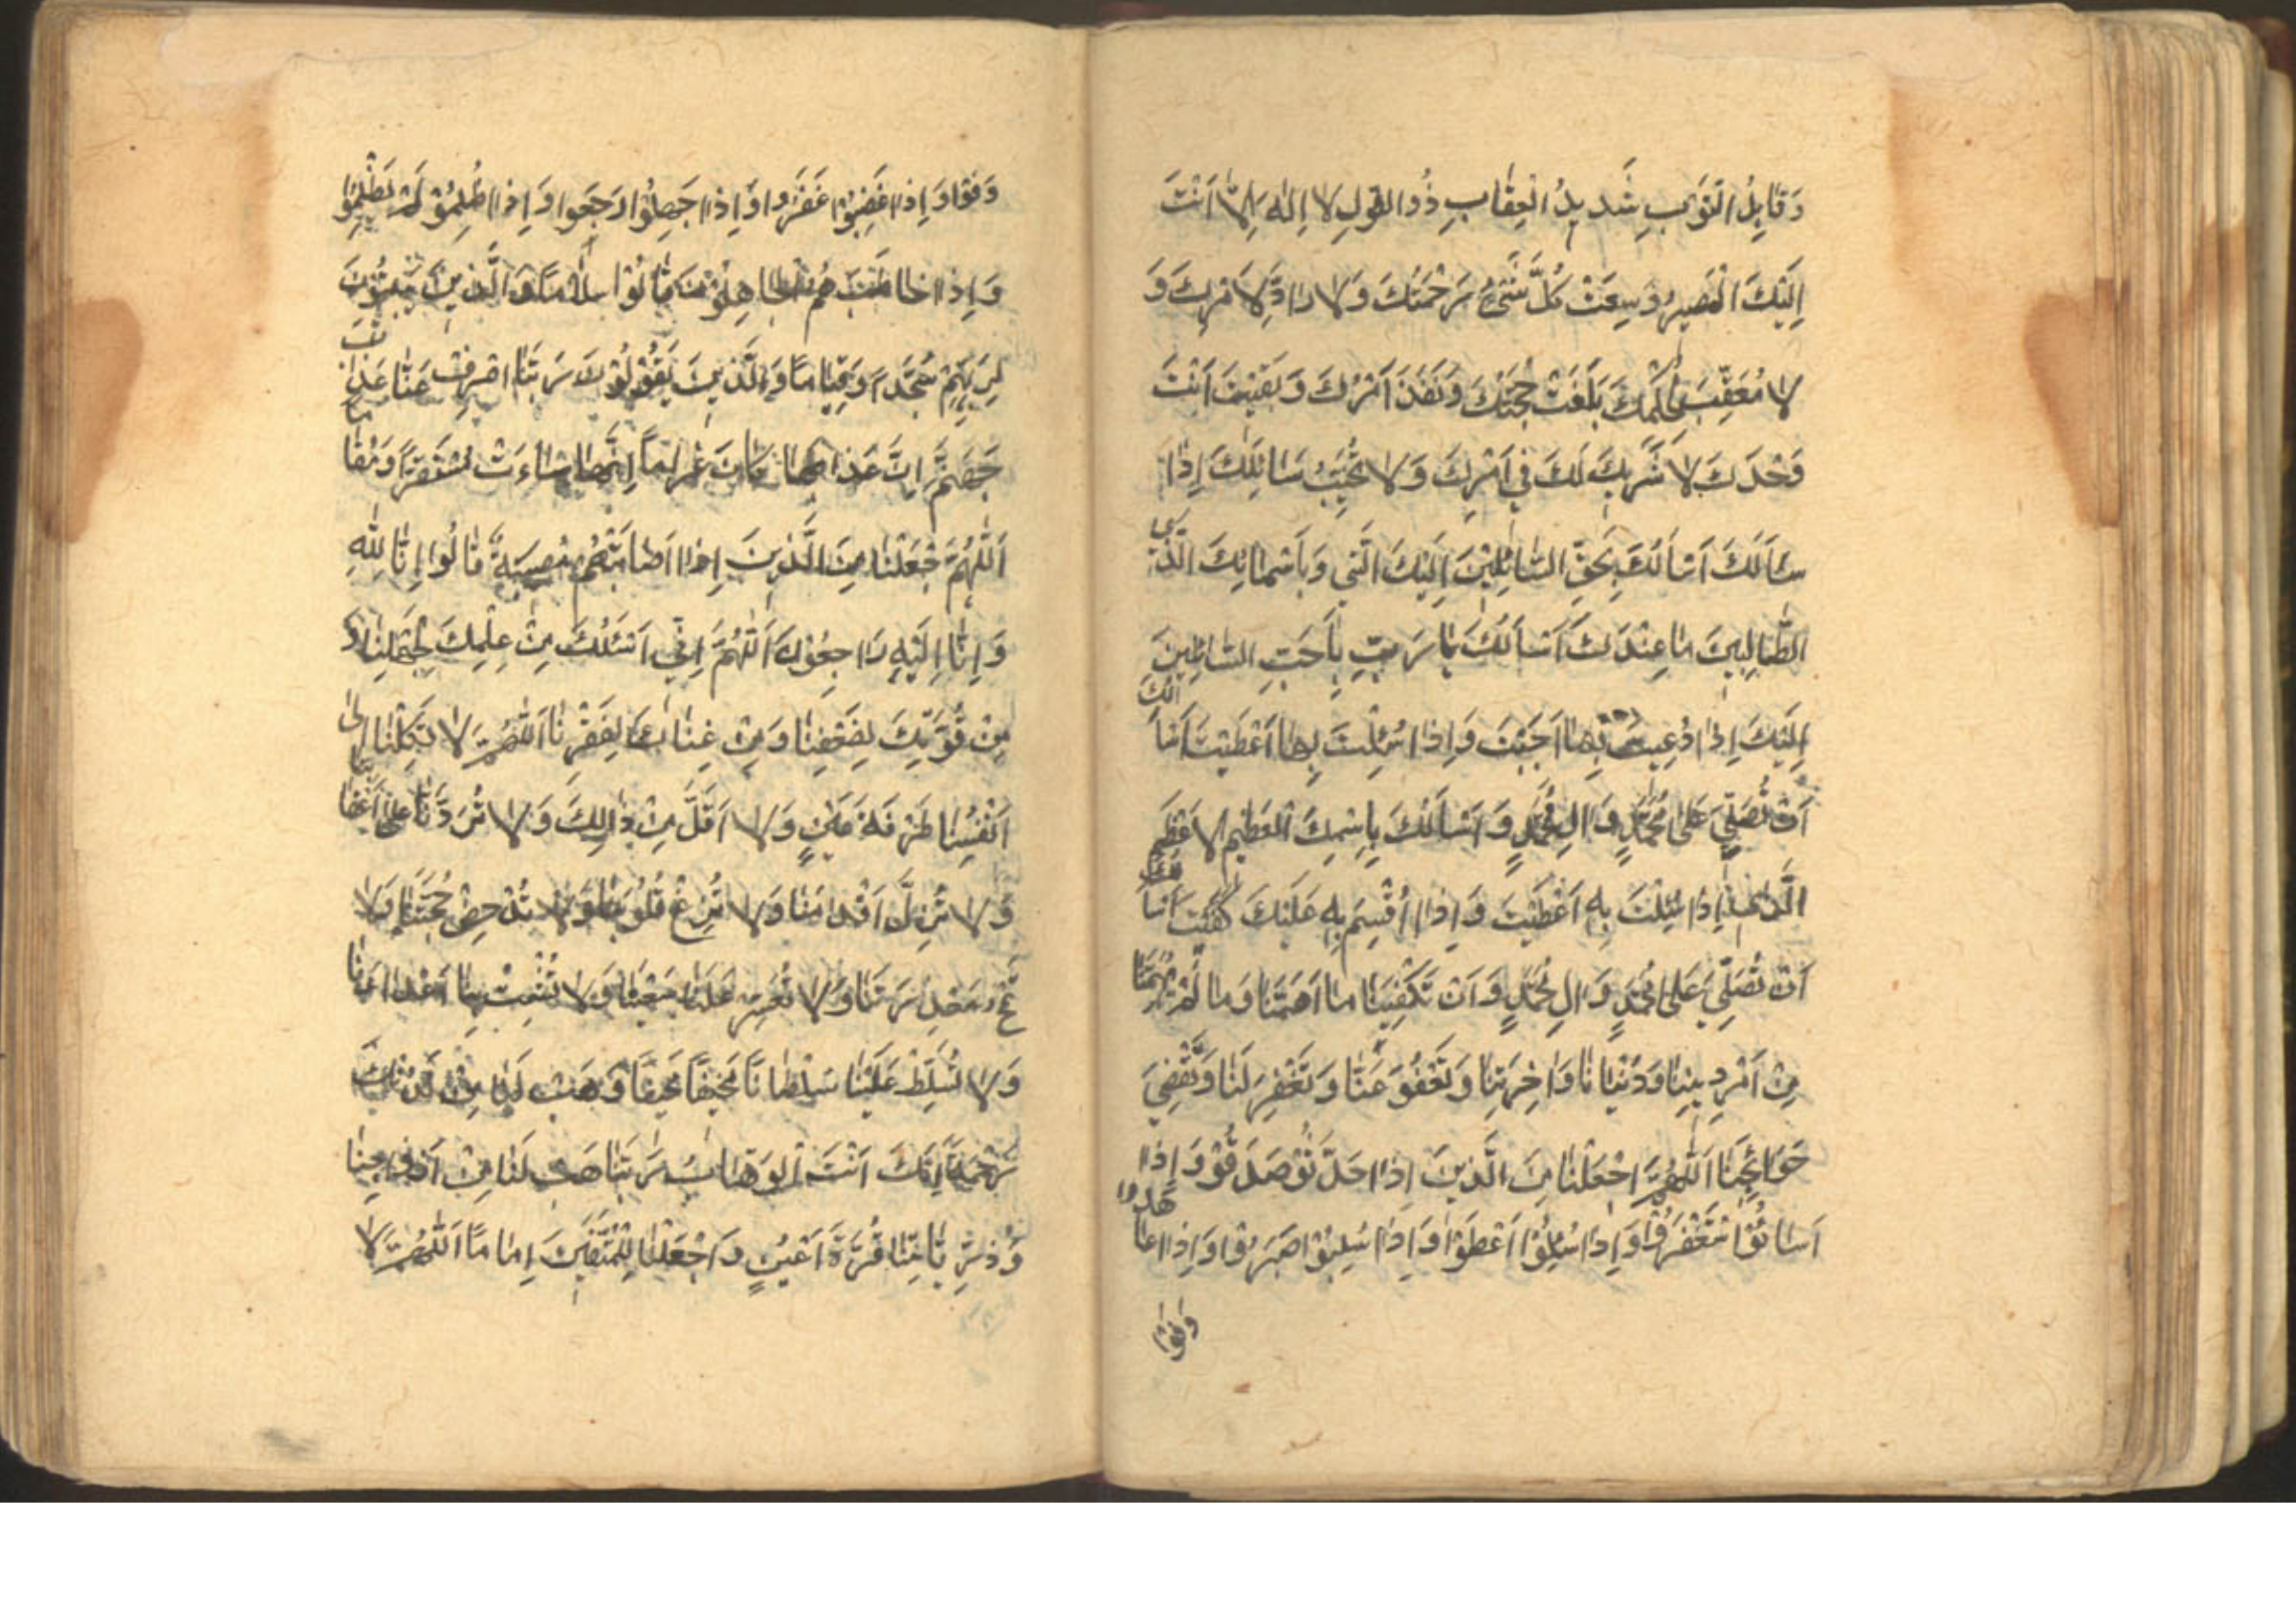 وَقَابِلُ التَّوْبِ شَدِيدُ الْعِقَابِ ذُو الطَّوْلِ لَا إِلٰهَ إِلَّا أَنْتَ
إِلَيْكَ الْمَصِيرُ وَسِعَتْ كُلَّ شَيْءٍ رَحْمَتُكَ وَلَا رَادَّ لِأَمْرِكَ وَ
لَا مُعَقِّبَ لِحُكْمِكَ بَلَغَتْ حُجَّتُكَ وَنَفَذَ أَمْرُكَ وَبَقِيتَ أَنْتَ
وَحْدَكَ لَا شَرِيكَ لَكَ فِي أَمْرِكَ وَلَا يَخِيبُ سَائِلُكَ إِذَا
سَأَلَكَ أَسْأَلُكَ بِحَقِّ السَّائِلِينَ إِلَيْكَ الَّتِي وَبِأَسْمَائِكَ الَّذِي
الطَّالِبِينَ مَا عِنْدَكَ أَسْأَلُكَ يَا رَبِّ بِأَحَبِّ السَّائِلِينَ
إِلَيْكَ إِذَا دُعِيتَ بِهَا أَجَبْتَ وَإِذَا سُئِلْتَ بِهَا أَعْطَيْتَ أَسْأَلُكَ
أَنْ تُصَلِّيَ عَلَى مُحَمَّدٍ وَآلِ مُحَمَّدٍ وَأَسْأَلُكَ بِاسْمِكَ الْعَظِيمِ الْأَعْظَمِ
الَّذِي إِذَا سُئِلْتَ بِهِ أَعْطَيْتَ وَإِذَا أُقْسِمَ بِهِ عَلَيْكَ كَفَيْتَ أَسْأَلُكَ
أَنْ تُصَلِّيَ عَلَى مُحَمَّدٍ وَآلِ مُحَمَّدٍ وَأَنْ تَكْفِيَنَا مَا أَهَمَّنَا وَمَا لَمْ يُهِمَّنَا
مِنْ أَمْرِ دِينِنَا وَدُنْيَانَا وَآخِرَتِنَا وَتَعْفُوَ عَنَّا وَتَغْفِرَ لَنَا وَتَقْضِيَ
حَوَائِجَنَا اللّٰهُمَّ اجْعَلْنَا مِنَ الَّذِينَ إِذَا حَدَّثُوا صَدَقُوا وَإِذَا
أَسَاءُوا اسْتَغْفَرُوا وَإِذَا سُئِلُوا أَعْطَوْا وَإِذَا سُلِبُوا صَبَرُوا وَإِذَا عَاهَدُوا
وَفَوْا
وَفَوْا وَإِذَا غَضِبُوا غَفَرُوا وَإِذَا جَهِلُوا رَجَعُوا وَإِذَا ظُلِمُوا لَمْ يَظْلِمُوا
وَإِذَا خَاطَبَهُمُ الْجَاهِلُونَ قَالُوا سَلَامًا وَالَّذِينَ يَبِيتُونَ
لِرَبِّهِمْ سُجَّدًا وَقِيَامًا وَالَّذِينَ يَقُولُونَ رَبَّنَا اصْرِفْ عَنَّا عَذَابَ
جَهَنَّمَ إِنَّ عَذَابَهَا كَانَ غَرَامًا إِنَّهَا سَاءَتْ مُسْتَقَرًّا وَمُقَامًا
اَللّٰهُمَّ اجْعَلْنَا مِنَ الَّذِينَ إِذَا أَصَابَتْهُمْ مُصِيبَةٌ قَالُوا إِنَّا لِلّٰهِ
وَإِنَّا إِلَيْهِ رَاجِعُونَ اَللّٰهُمَّ إِنِّي أَسْئَلُكَ مِنْ عِلْمِكَ لِجَهْلِنَا وَ
مِنْ قُوَّتِكَ لِضَعْفِنَا وَمِنْ غِنَاكَ لِفَقْرِنَا اَللّٰهُمَّ لَا تَكِلْنَا إِلَى
أَنْفُسِنَا طَرْفَةَ عَيْنٍ وَلَا أَقَلَّ مِنْ ذٰلِكَ وَلَا تَرُدَّنَا عَلَى أَعْقَابِنَا
وَلَا تُزِلَّ أَقْدَامَنَا وَلَا تُزِغْ قُلُوبَنَا وَلَا تُدْحِضْ حُجَّتَنَا وَلَا
تَمْحُ مَعْذِرَتَنَا وَلَا تُعْسِرْ عَلَيْنَا سَعْيَنَا وَلَا تُشْمِتْ بِنَا أَعْدَاءَنَا
وَلَا تُسَلِّطْ عَلَيْنَا سُلْطَانًا مُخِيفًا وَهَبْ لَنَا مِنْ لَدُنْكَ
رَحْمَةً إِنَّكَ أَنْتَ الْوَهَّابُ رَبَّنَا هَبْ لَنَا مِنْ أَزْوَاجِنَا
وَذُرِّيَّاتِنَا قُرَّةَ أَعْيُنٍ وَاجْعَلْنَا لِلْمُتَّقِينَ إِمَامًا اَللّٰهُمَّ لَا